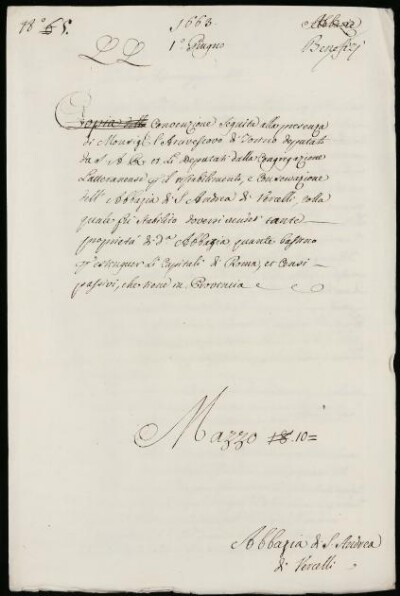 18° 65.
1663
1° Giugno
Abbazie
Benefizj
Copia della Convenzione seguita alla presenza
di Monsig.r l'Arcivescovo di Torino deputati
da S. A. R. et li Deputati dalla Congregazione
Lateranense p l' ristabilimento, e Conservazione
dell' Abbazia di S. Andrea di Vercelli, colla
quale fù stabilito doversi vender tante
proprietà di d.a Abbazia quante bastano
p estinguer li Capitali di Roma, et Censi
passivi, che sono in Provincia
Mazzo 18. 10=
Abbazia di S. Andrea
di Vercelli